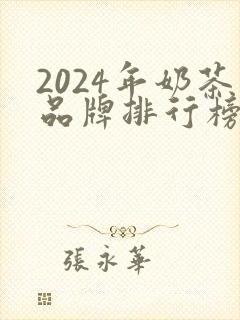 2024年奶茶
品牌排行榜
張永華